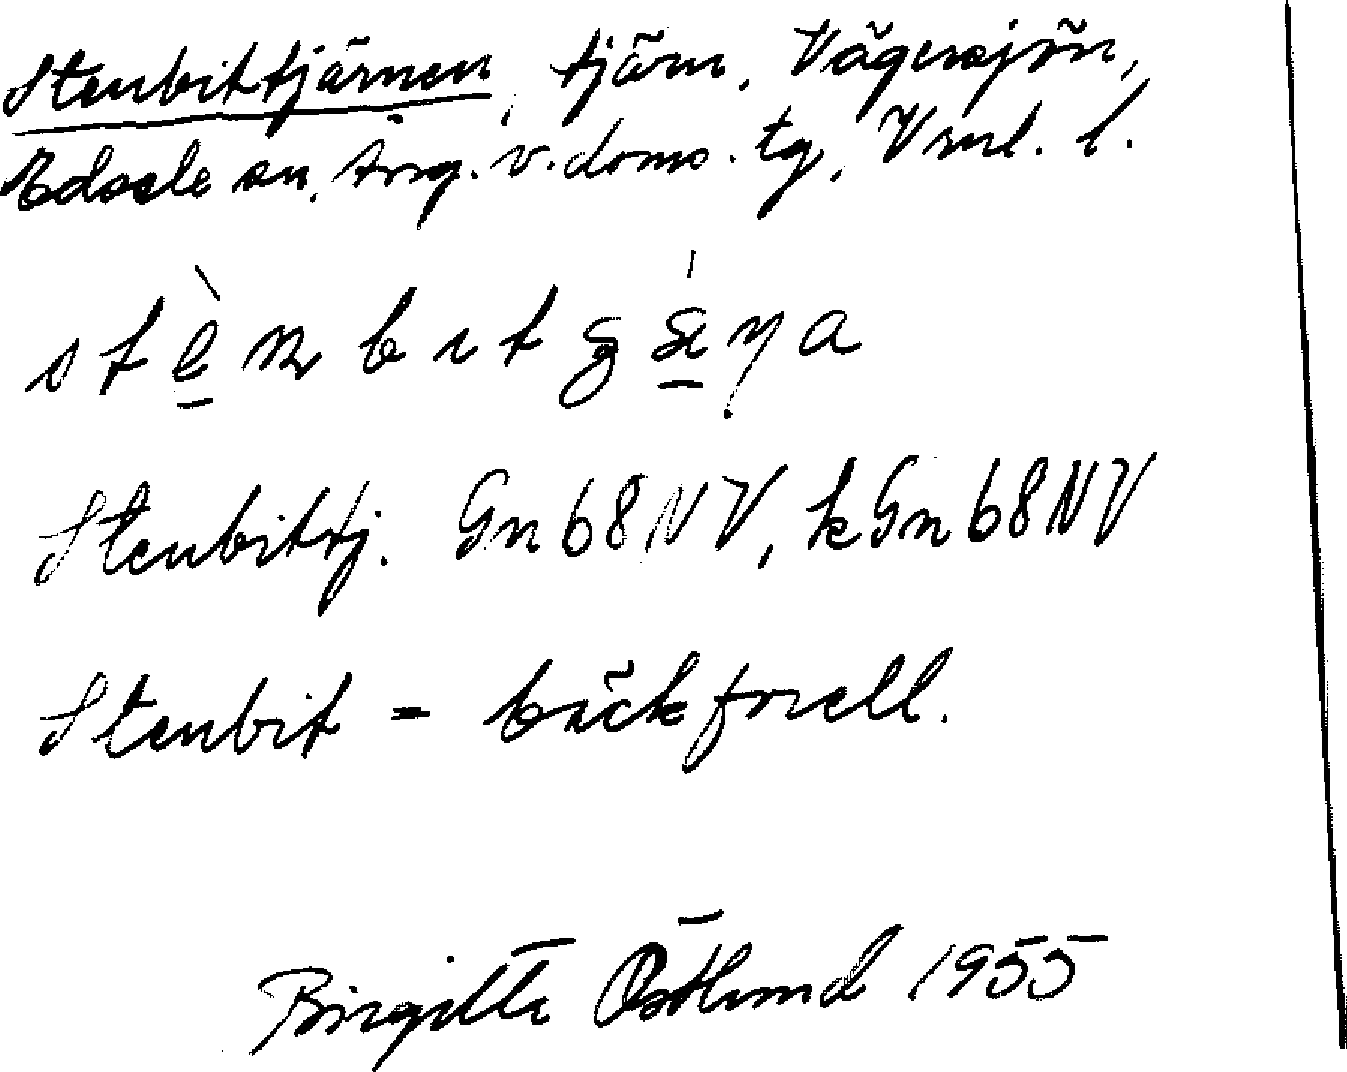 Stenbittjärnen, tjärn, Vågersjön,
Edsele sn, Ång. v. doms. tg, Vnrl. l.
Stenbittj. Gn 68 NV, kGn 68 NV
Stenbit = bäckforell.
Birgitta Östlund 1955